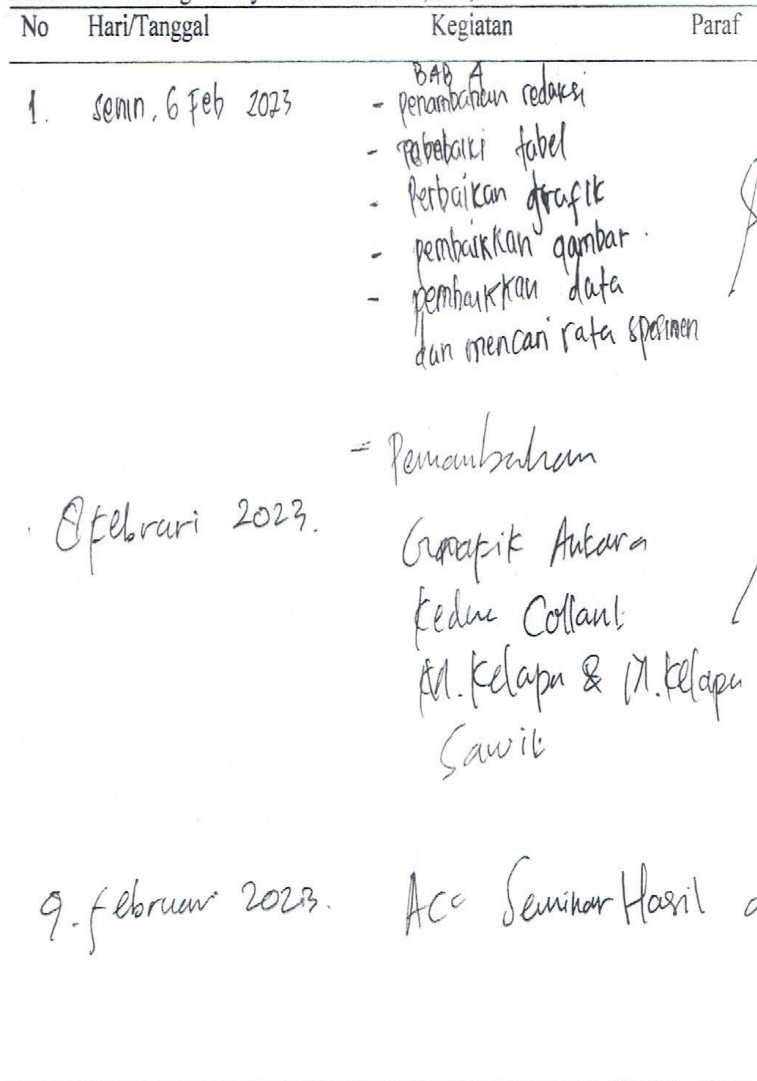 No Hari/Tanggal Kegiatan Paraf
BAB 4
1. Senin, 6 Feb 2023 - penambahan redaksi
- tabel
- Perbaikan grafik
- pembaikkan gambar.
- pembaikkan data
dan mencari rata spesimen
- Penambahan
8 Februari 2023. Grafik Antara
kedua Collant
M. Kelapa & M. Kelapa
Sawit
9. Februari 2023. Acc Seminar Hasil